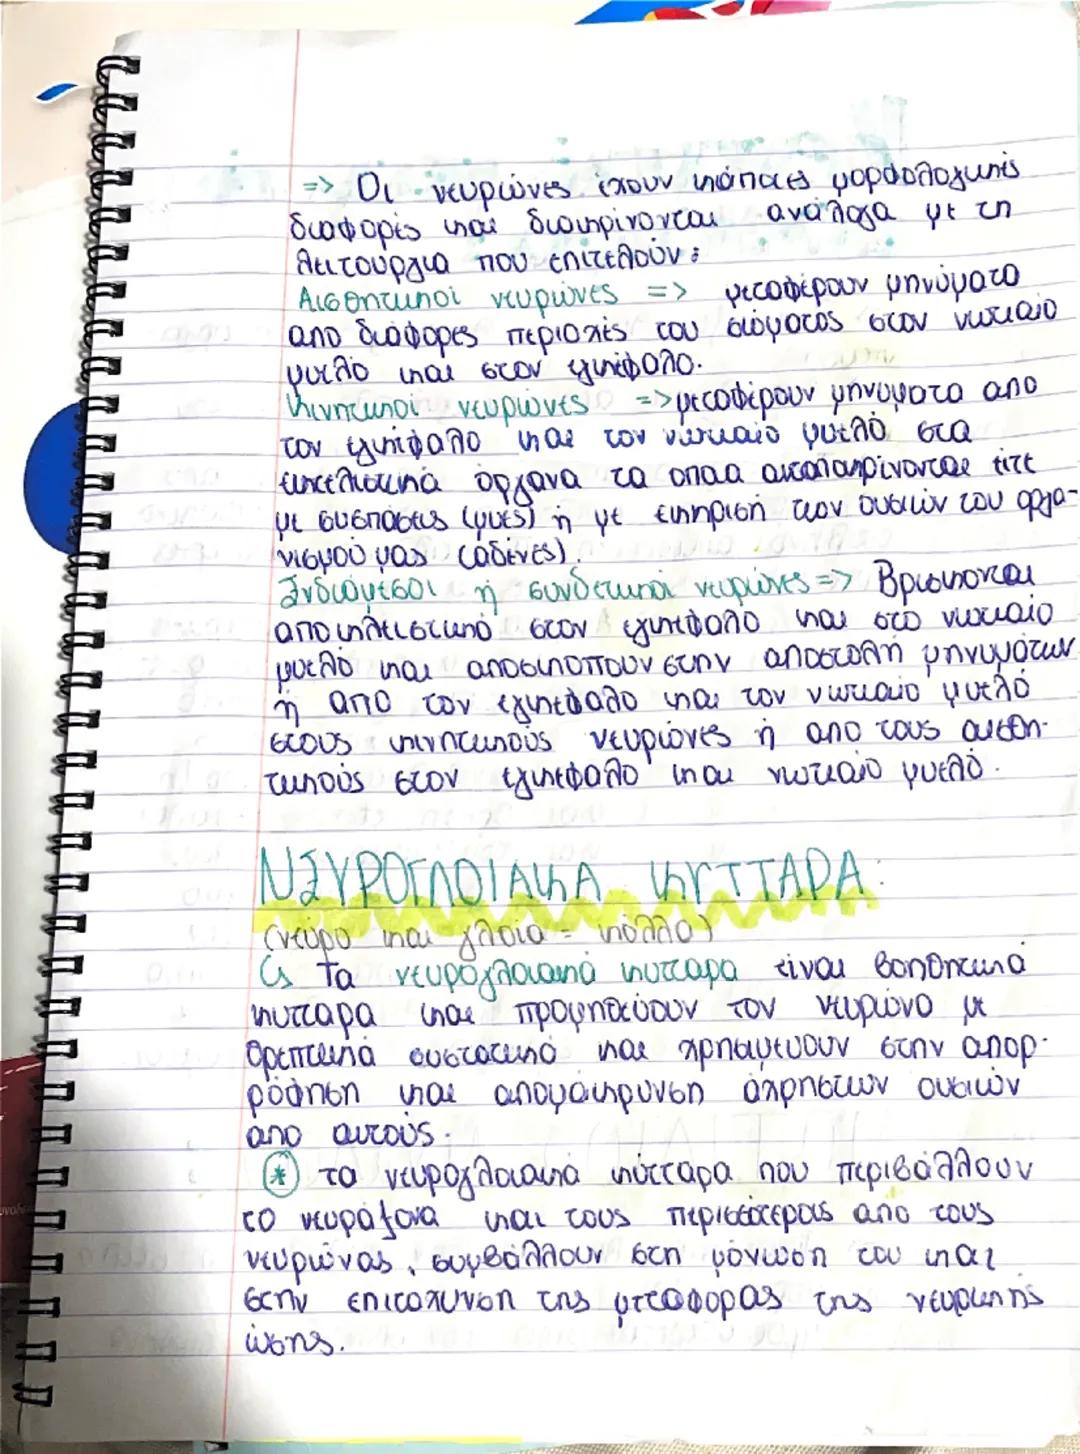 => Οι νευρώνες έχουν κάποιες μορφολογικές
διαφορές και διακρίνονται ανάλογα με τη
λειτουργία που επιτελούν:
Αισθητικοί νευρώνες => μεταφέρουν μηνύματα
απο διάφορες περιοχές του σώματος στον νωτιαίο
μυελό και στον εγκέφαλο.
Κινητικοί νευρώνες => μεταφέρουν μηνύματα απο
τον εγκέφαλο και τον νωτιαίο μυελό στα
εκτελεστικά όργανα τα οποία ανταποκρίνονται είτε
με συσπάσεις (μυες) ή με έκκριση των ουσιών του οργα-
νισμού μας (αδένες).
Ενδιάμεσοι ή συνδετικοί νευρώνες => Βρίσκονται
αποκλειστικά στον εγκέφαλο και στο νωτιαίο
μυελό και αποσκοπούν στην αποστολή μηνυμάτων
ή απο τον εγκέφαλο και τον νωτιαίο μυελό
στους κινητικούς νευρώνες ή απο τους αισθη-
τικούς στον εγκέφαλο και νωτιαίο μυελό.
ΝΕΥΡΟΓΛΟΙΑΚΑ ΚΥΤΤΑΡΑ:
(νεύρο και γλοία = κόλλα)
↳ Τα νευρογλοιακά κυτταρα είναι βοηθητικά
κυτταρα και προμηθεύουν τον νευρώνα με
θρεπτικά συστατικά και χρησιμεύουν στην απορ-
ρόφηση και απομάκρυνση άχρηστων ουσιών
απο αυτούς.
* τα νευρογλοιακά κύτταρα που περιβάλλουν
το νευράξονα και τους περισσότερους απο τους
νευρώνας, συμβάλλουν στη μόνωση του και
στην επιτάχυνση της μεταφοράς της νευρικής
ώσης.